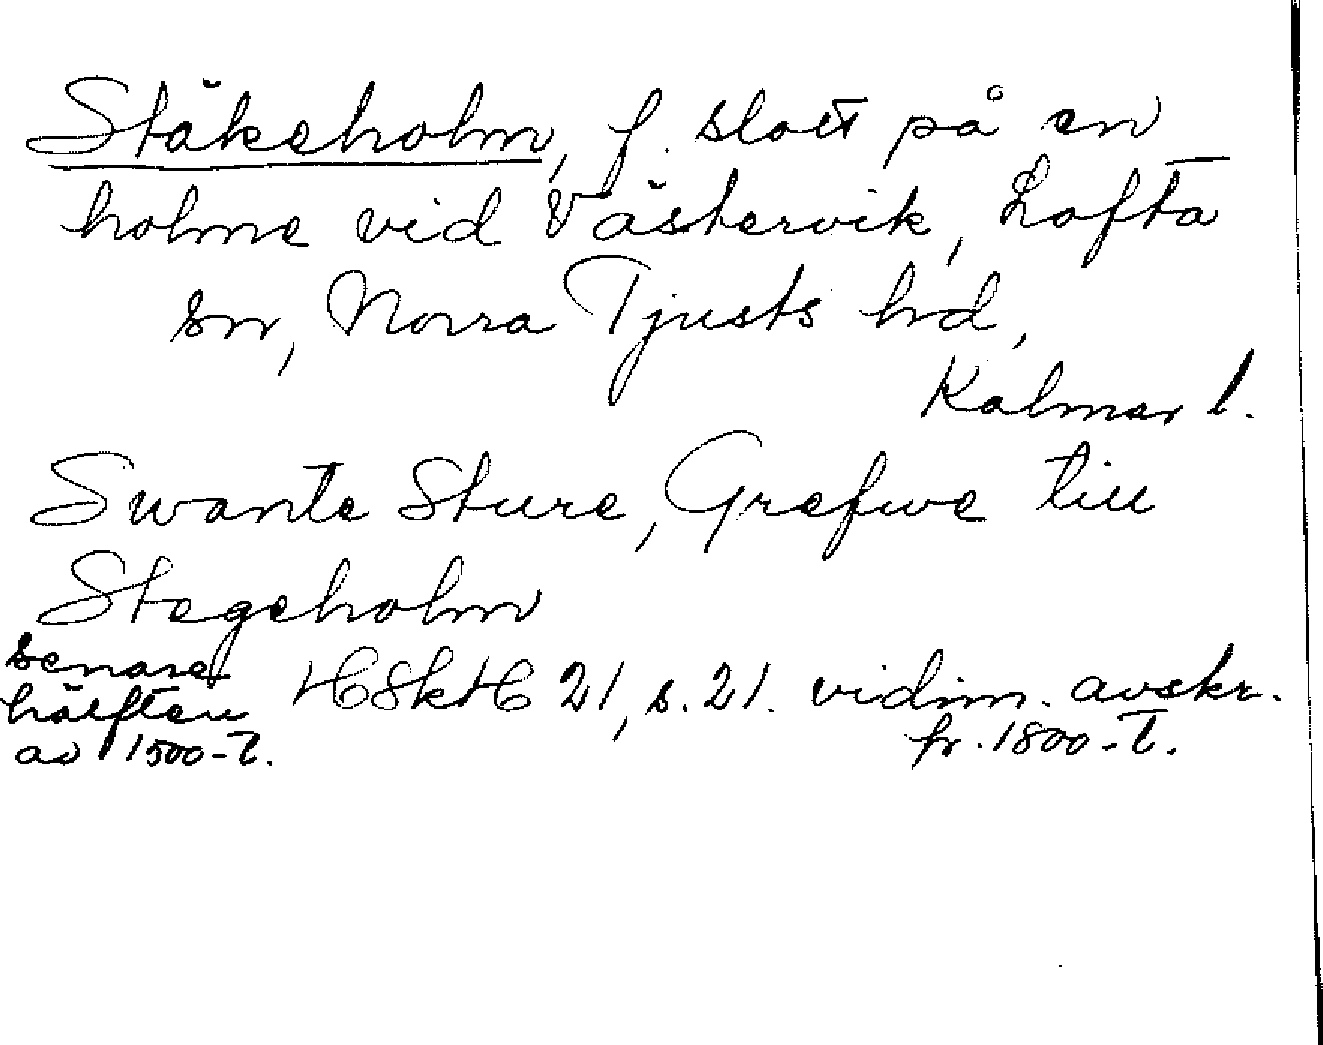 Stäkeholm, f. slott på en
holme vid Västervik, Lofta
sn, Norra Tjusts hd,
Kalmar l.
Swante Sture, Grefwe till
Stegeholm
senare
hälften
av 1500-t.
HSkH 21, s. 21. vidim. avskr.
fr. 1800-t.